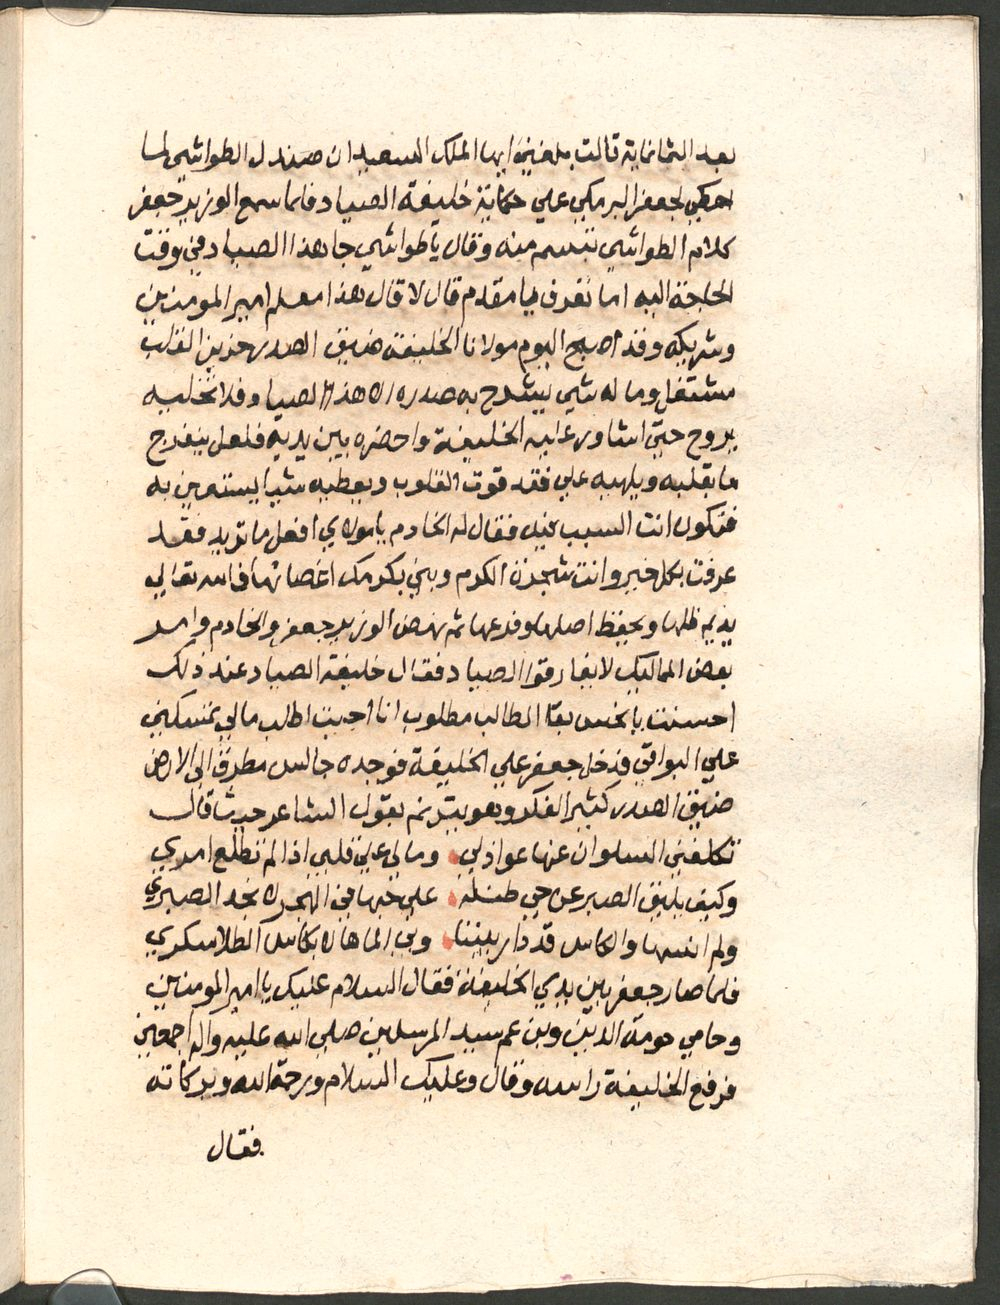 بعد الثمانماية قالت بلغني ايها الملك السعيد ان صندل الطواشي لما
احكي لجعفر البرمكي علي حكاية خليفة الصياد فلما سمع الوزير جعفر
كلام الطواشي تبسم منه وقال يا طواشي جا هذا الصياد في وقت
الحاجة اليه اما تعرف يا مقدم قال لا قال هذا معلم امير المومنين
وشريكه وقد اصبح اليوم مولانا الخليفة ضيق الصدر حزين القلب
مشتغل وما له شي يشرح به صدره الا هذا الصياد فلا تخليه
يروح حتي اشاور عليه الخليفة واحضره بين يديه فلعل ينفرج
ما بقلبه ويلهيه علي فقد قوت القلوب ويعطيه شيا يستعين به
فتكون انت السبب فيه فقال له الخادم يا مولاي افعل ما تريد فقد
عرفت بكل خير وانت شجرة الكرم وبني بكرمك اغصانها فالله تعالي
يديم ظلها ويحفظ اصلها وفرعها ثم نهض الوزير جعفر والخادم وامر
بعض المماليك لا يفارقوا الصياد فقال خليفة الصياد عند ذلك
احسنت يا نحس بقا الطالب مطلوب انا اجيت اطلب مالي تمسكني
علي البواقي فدخل جعفر علي الخليفة فوجده جالس مطرق الي الارض
ضيق الصدر كثير الفكر وهو يترنم بقول الشاعر حيث قال
تكلفني السلوان عنها عواذلي وما لي علي قلبي اذا لم تطلع امري
وكيف يليق الصبر عن حي طفلة علي حبها في الهجر لا نجد الصبري
ولم انسها والكاس قد دار بيننا وبي الماها لا بكاس الطلا سكري
فلما صار جعفر بين يدي الخليفة فقال السلام عليك يا امير المومنين
وحامي حومة الدين وبن عم سيد المرسلين صلي الله عليه واله اجمعين
فرفع الخليفة راسه وقال وعليك السلام ورحمة الله وبركاته
فقال